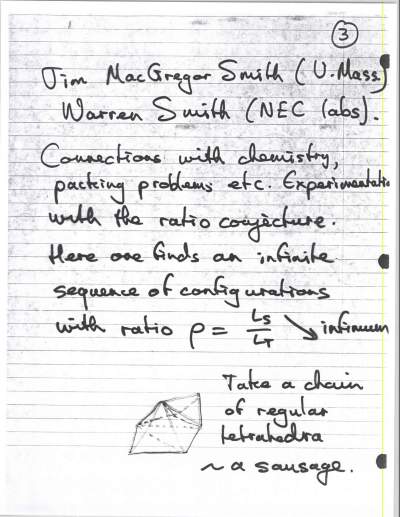 3
Jim MacGregor Smith (U.Mass)
Warren Smith (NEC labs).
Connections with chemistry,
packing problems etc. Experimentati
with the ratio conjecture.
Here one finds an infinite
sequence of configurations
with ratio ρ = LS/LT ↘ infimum
Take a chain
of regular
tetrahedra
~ a sausage.